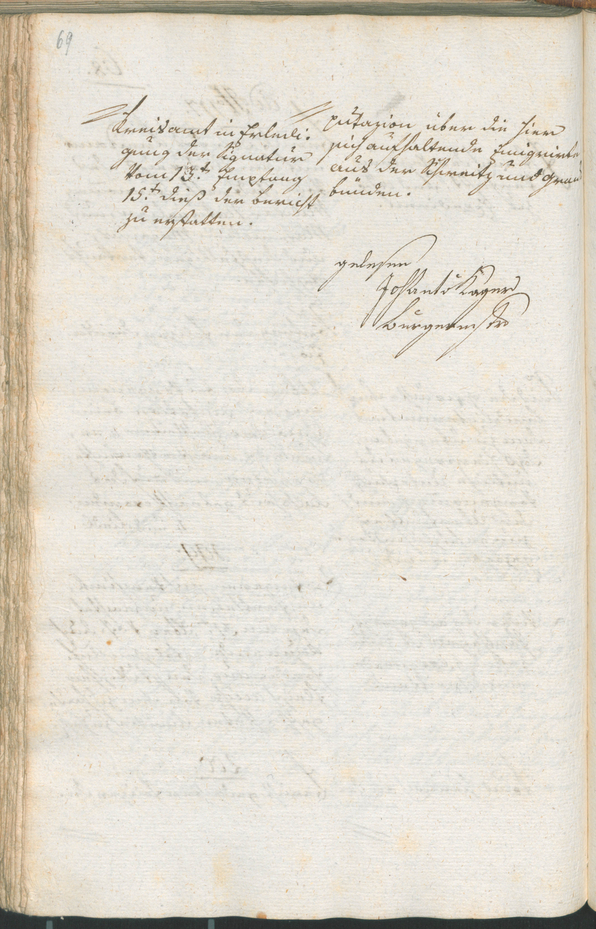 69
Kreisamt in Erledi-
gung der Signatur
vom 13t Empfang
15t dieß der Bericht
zu erstatten.
putazion über die hier
sich aufhaltende Emigrirte
aus der Schweitz und Grau
bünden.
gelesen
Joh Anto Kager
Burgermstr